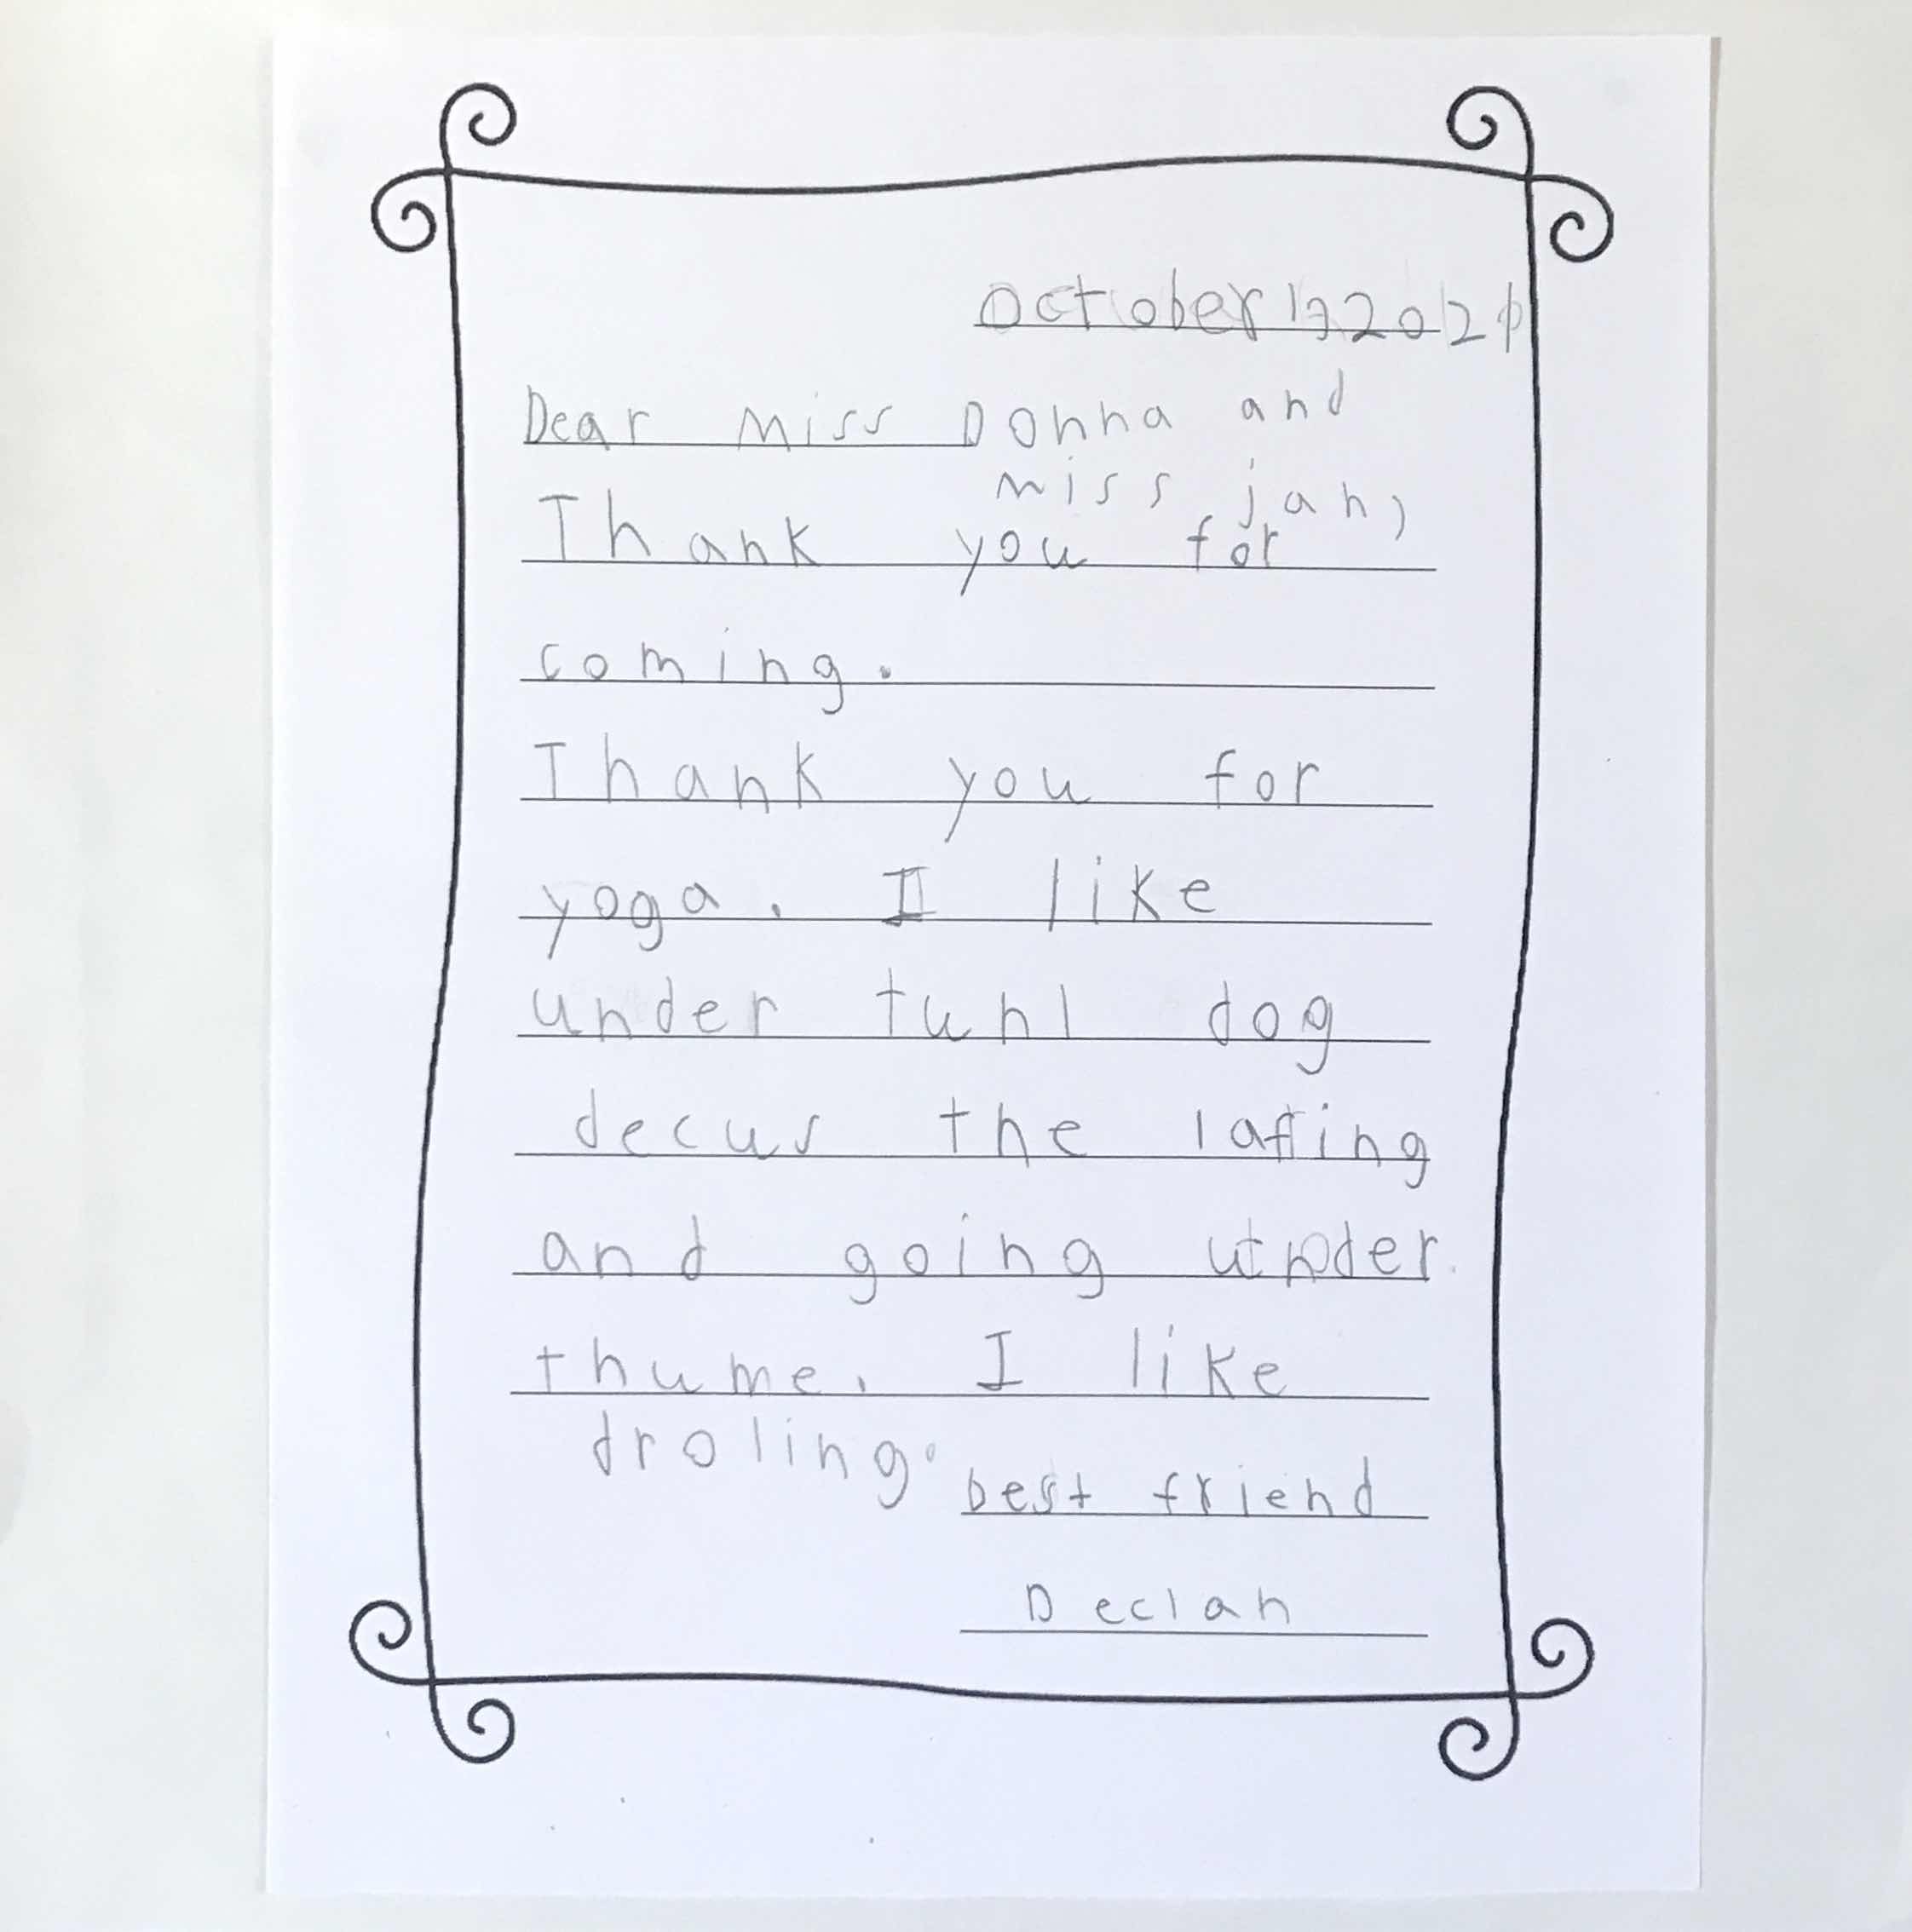 October 2021
Dear Miss Donna and
miss jan,
Thank you for
coming.
Thank you for
yoga. I like
under tunl dog
decus the lafing
and going under
thume. I like
droling.
best friend
Declan